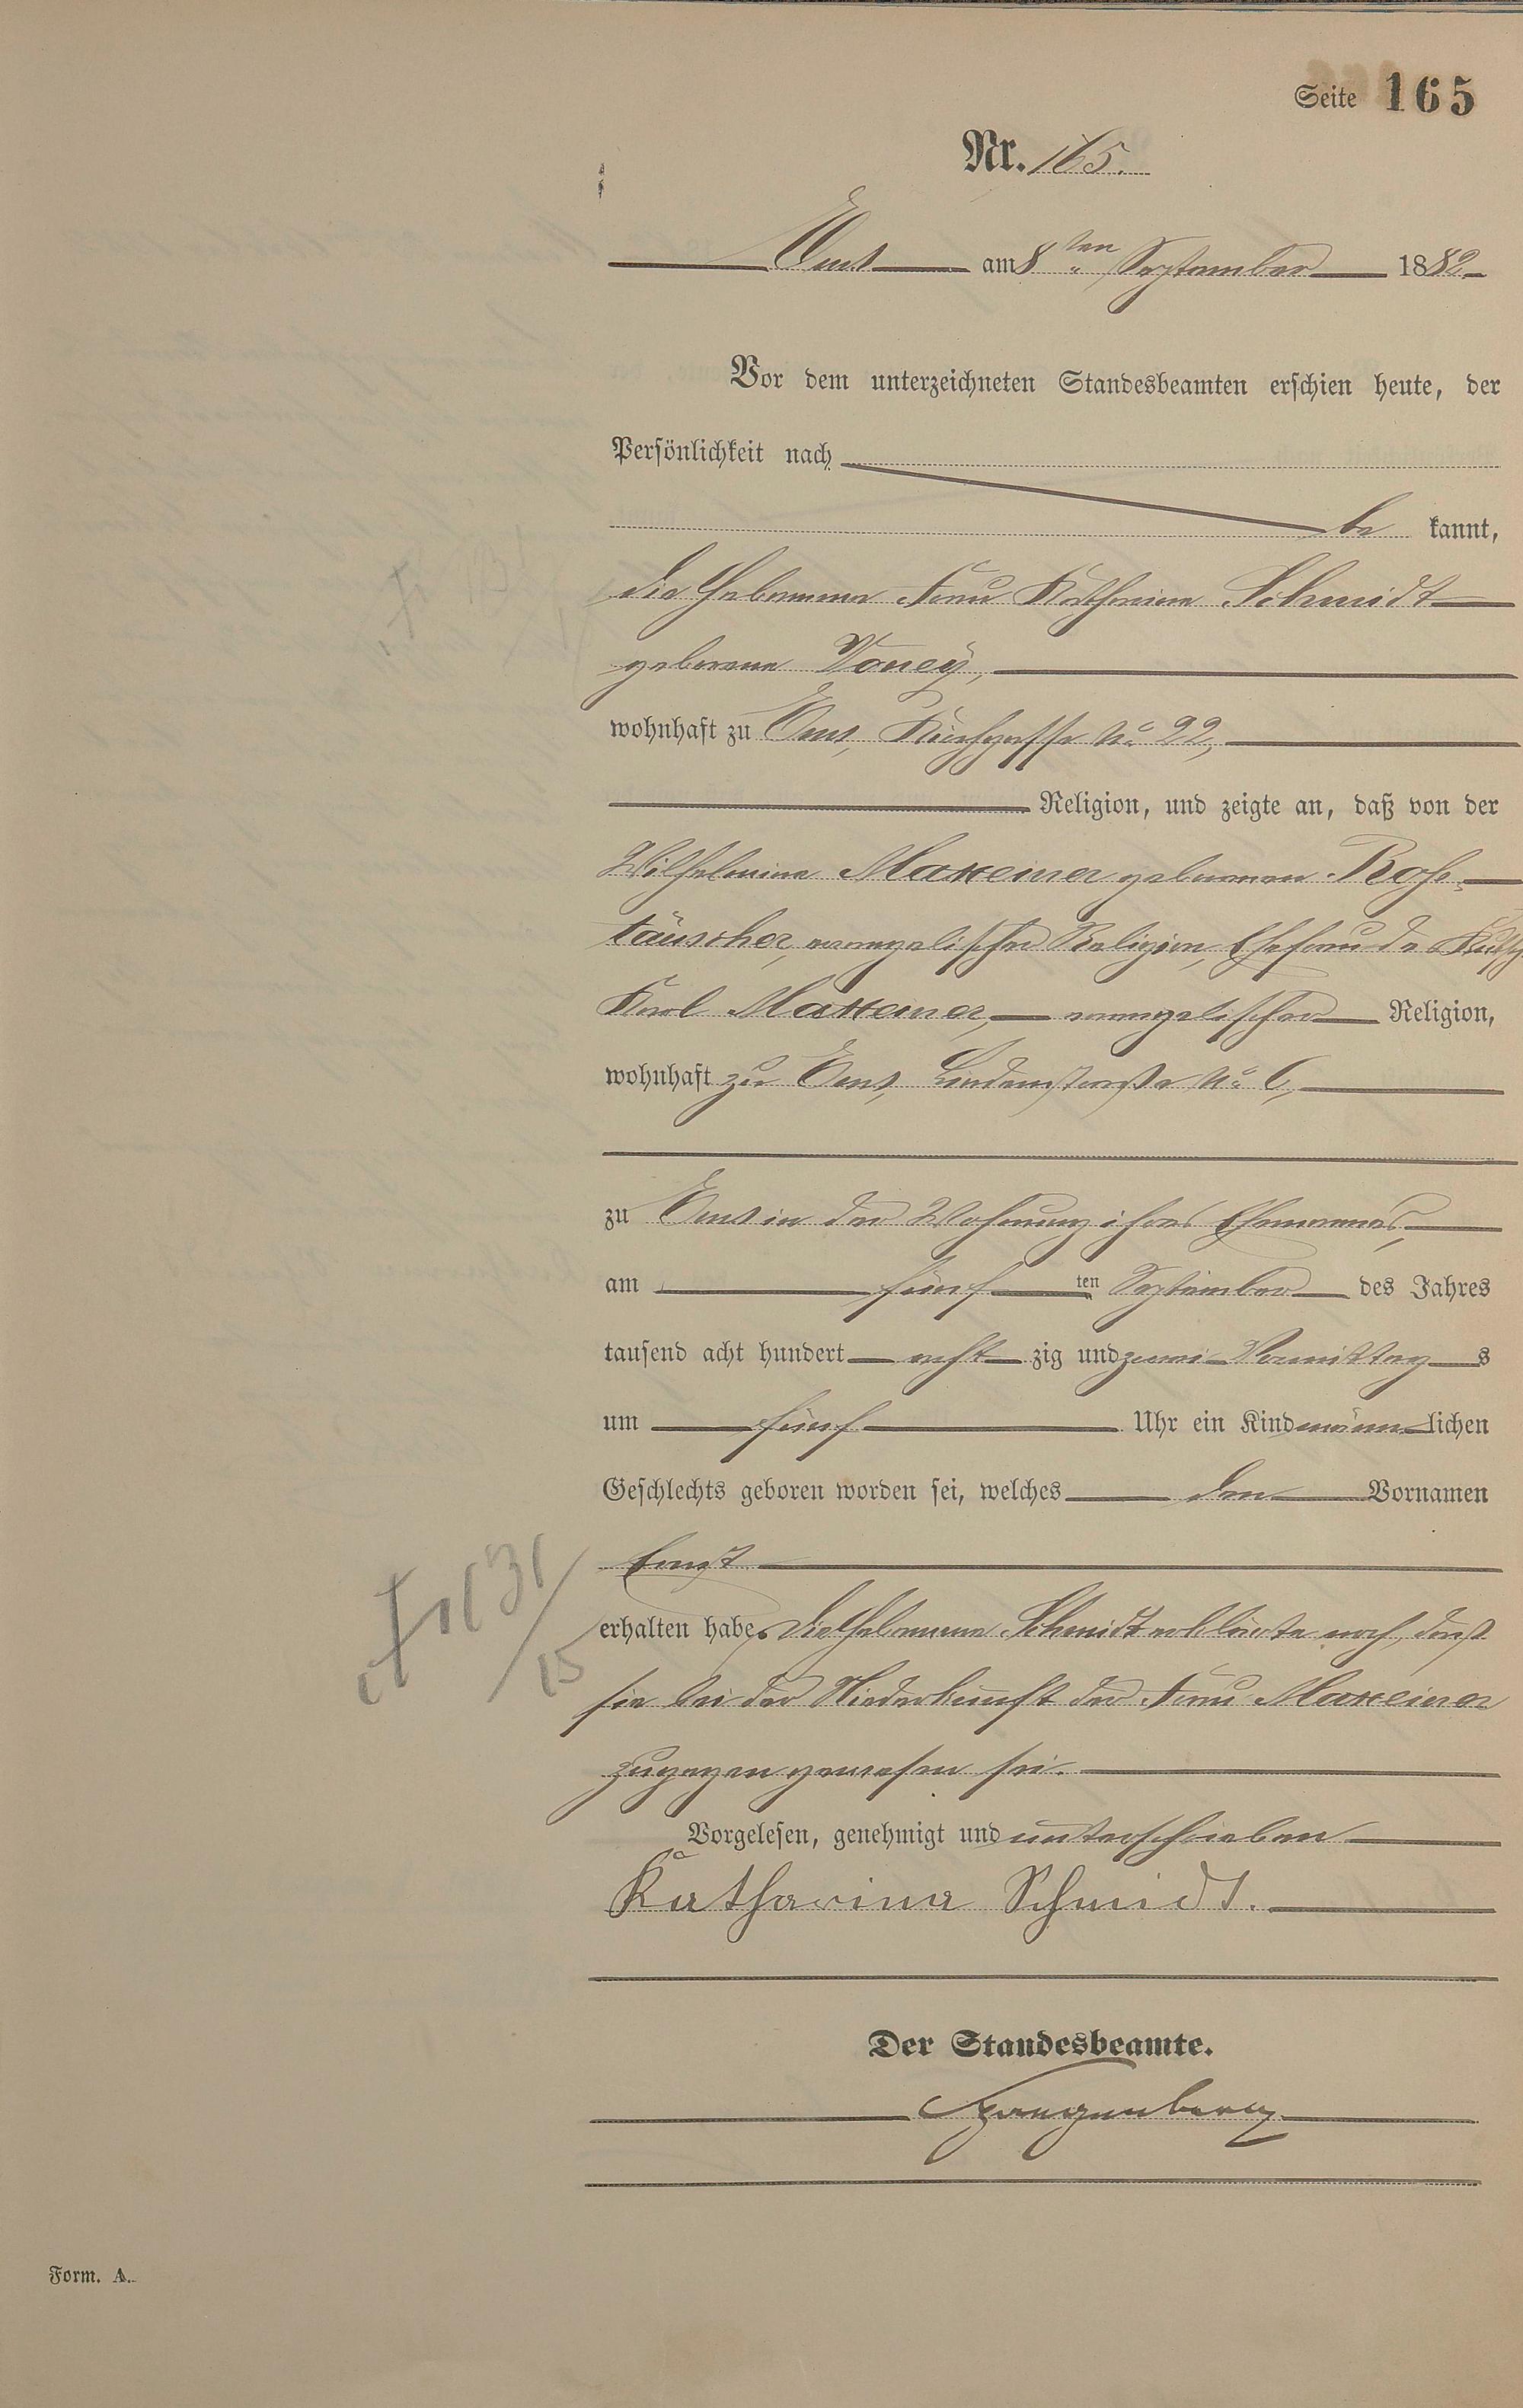 Seite 165
Nr. 165.
Ems am 8ten September 1882
Vor dem unterzeichneten Standesbeamten erschien heute, der
Persönlichkeit nach
be kannt,
die Hebamme Frau Katharina Schmidt
geborene
wohnhaft zu Ems, Kirchgasse No 22,
Religion, und zeigte an, daß von der
Wilhelmine Maxeiner geborenen Rohs-
täuscher, evangelischer Religion, Ehefrau des
Karl Maxeiner, evangelischer Religion,
wohnhaft zu Ems, Lindenstraße No 6,
zu Ems in der Wohnung ihres Ehemannes,
am fünf ten September des Jahres
tausend acht hundert acht zig und zwei Vormittag s
um fünf Uhr ein Kind männ lichen
Geschlechts geboren worden sei, welches den Vornamen
Ernst
erhalten habe. Die Hebamme Schmidt erklärte noch, daß
sie bei der Niederkunft der Frau Maxeiner
zugegen gewesen sei.
Vorgelesen, genehmigt und unterschrieben
Katharina Schmidt.
Der Standesbeamte.
Form. A.